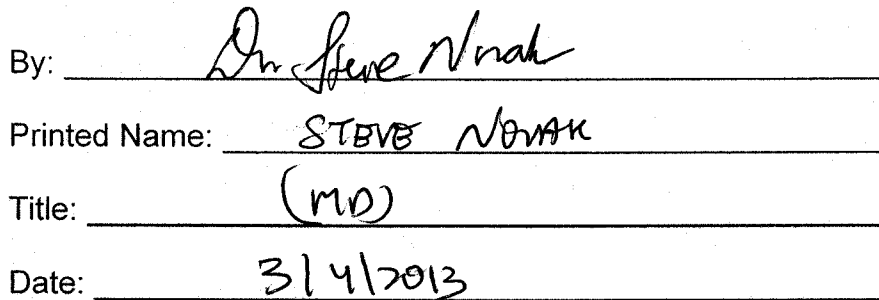 By: Dr Steve Novak
Printed Name: STEVE NOVAK
Title: (MD)
Date: 3/4/2013